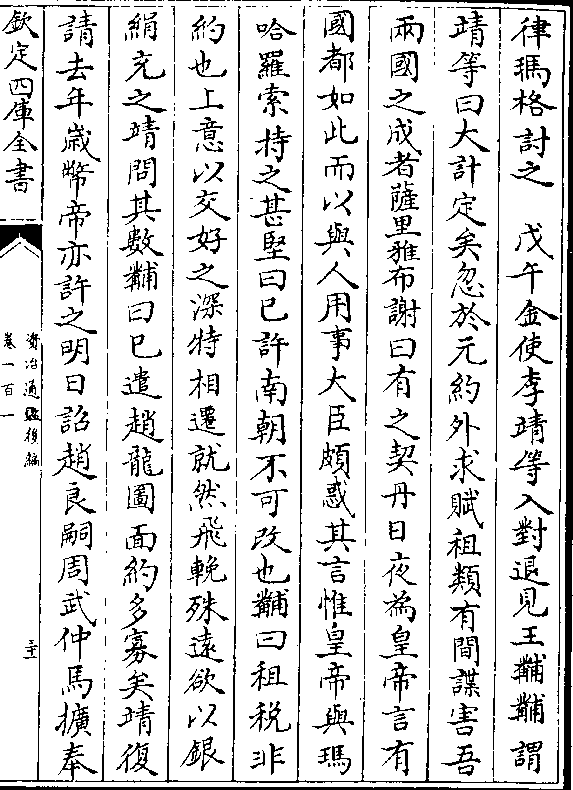 律瑪格討之　戊午金使李靖等入對退見王黼黼謂
靖等曰大計定矣忽於元約外求賦租類有間諜害吾
兩國之成者薩里雅布謝曰有之契丹日夜為皇帝言有
國都如此而以與人用事大臣頗惑其言惟皇帝與瑪
哈羅索持之甚堅曰已許南朝不可改也黼曰租税非
約也上意以交好之深特相遷就然飛輓殊遠欲以銀
絹充之靖問其數黼曰已遣趙龍圖面約多寡矣靖復
請去年歲幣帝亦許之明日詔趙良嗣周武仲馬擴奉
欽定四庫全書
資治通鑑後編
卷一百一
三十